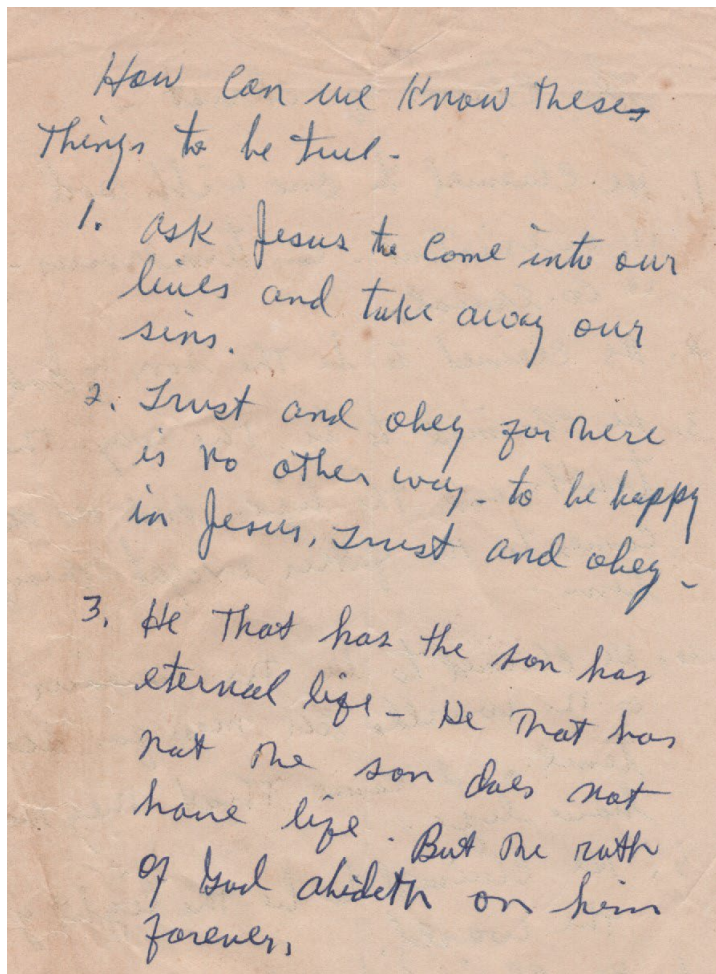 How can we know these
things to be true -
1. Ask Jesus the come into our
lives and take away our
sins.
2. Trust and obey for there
is no other way - to be happy
in Jesus, Trust and obey -
3. He that has the son has
eternal life - He that has
not the son does not
have life. But the rath
of God abideth on him
forever.